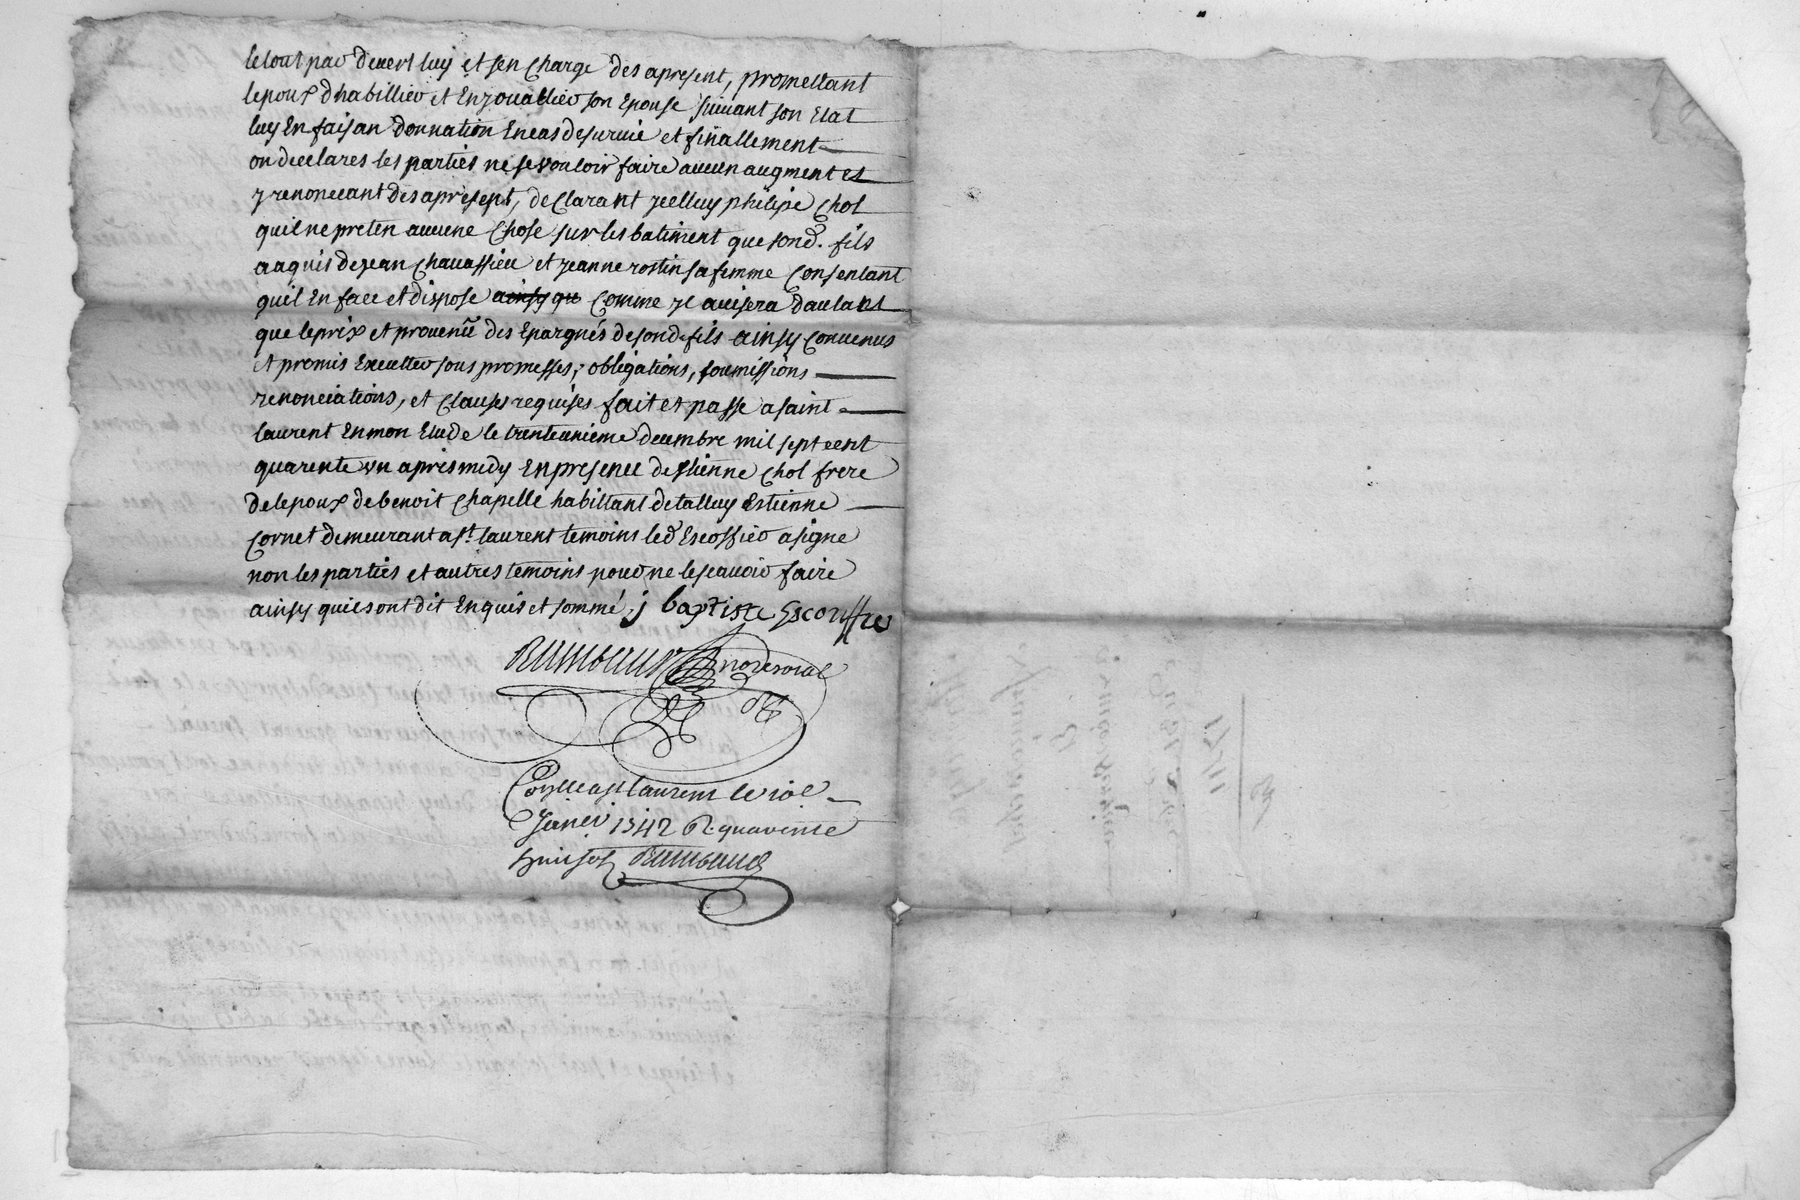 letout par devert luy et sen charge des apresent, promettant
lepoux dhabillier et Enjouallier son Epouse suivant son Etat
luy En faisan donnation Encas desurvie et finallement
on declares les parties ne se vouloir faire aucun augment et
y renoncant des apresent, declarant yelluy philipe chol
quil ne preten aucune chose sur les batiment que sond. fils
a aquis dejean chavassieu et jeanne rostin sa femme consentant
quil En face et dispose ainsy que comme yl avisera dautant
que leprix et provenü des Epargnés desond. fils ainsy convenus
et promis Executter sous promesses, obligations, soumissions
renonciations, et clauses requises fait et passe a saint
laurent Enmon Etude le trenteunieme decembre mil sept cent
quarente un apres medy Enpresence de Etienne chol frere
de lepoux de benoit chapelle habittant detalluy Estienne
cornet demeurant a st. laurent temoins led Escoffier a signe
non les parties et autres temoins pour ne lescavoir faire
ainsy quils ont dit Enquis et sommé, j baptiste Escoffier
Rambaud no.re roial
Coñlle a st laurent le viole
Janer 1742 R. quarente
huit sols Rambaud
1741